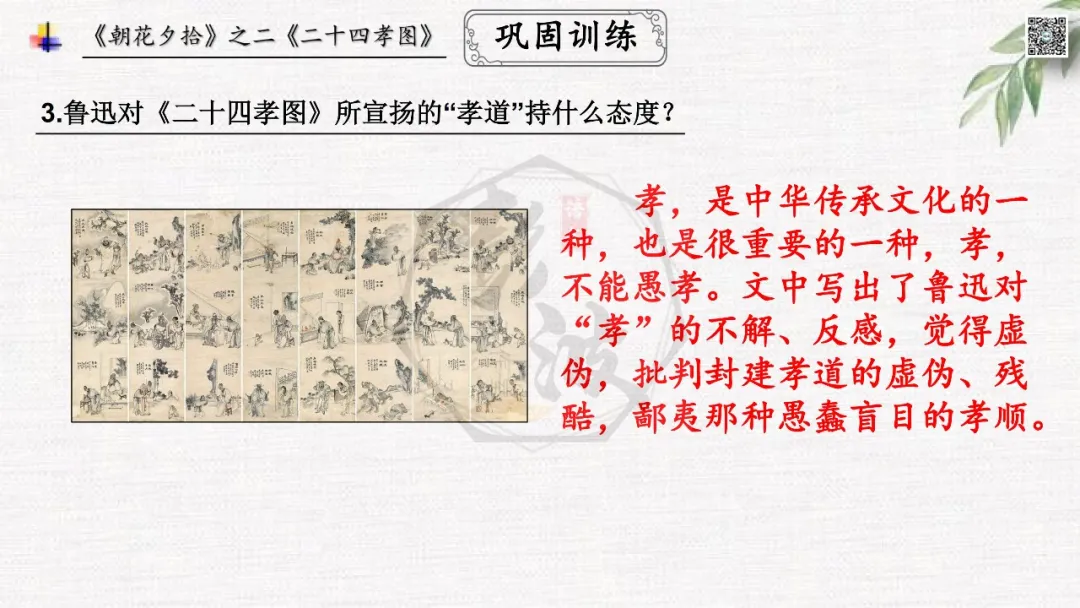 《朝花夕拾》之二《二十四孝图》
巩固训练
3.鲁迅对《二十四孝图》所宣扬的“孝道”持什么态度？
孝，是中华传承文化的一
种，也是很重要的一种，孝，
不能愚孝。文中写出了鲁迅对
“孝”的不解、反感，觉得虚
伪，批判封建孝道的虚伪、残
酷，鄙夷那种愚蠢盲目的孝顺。